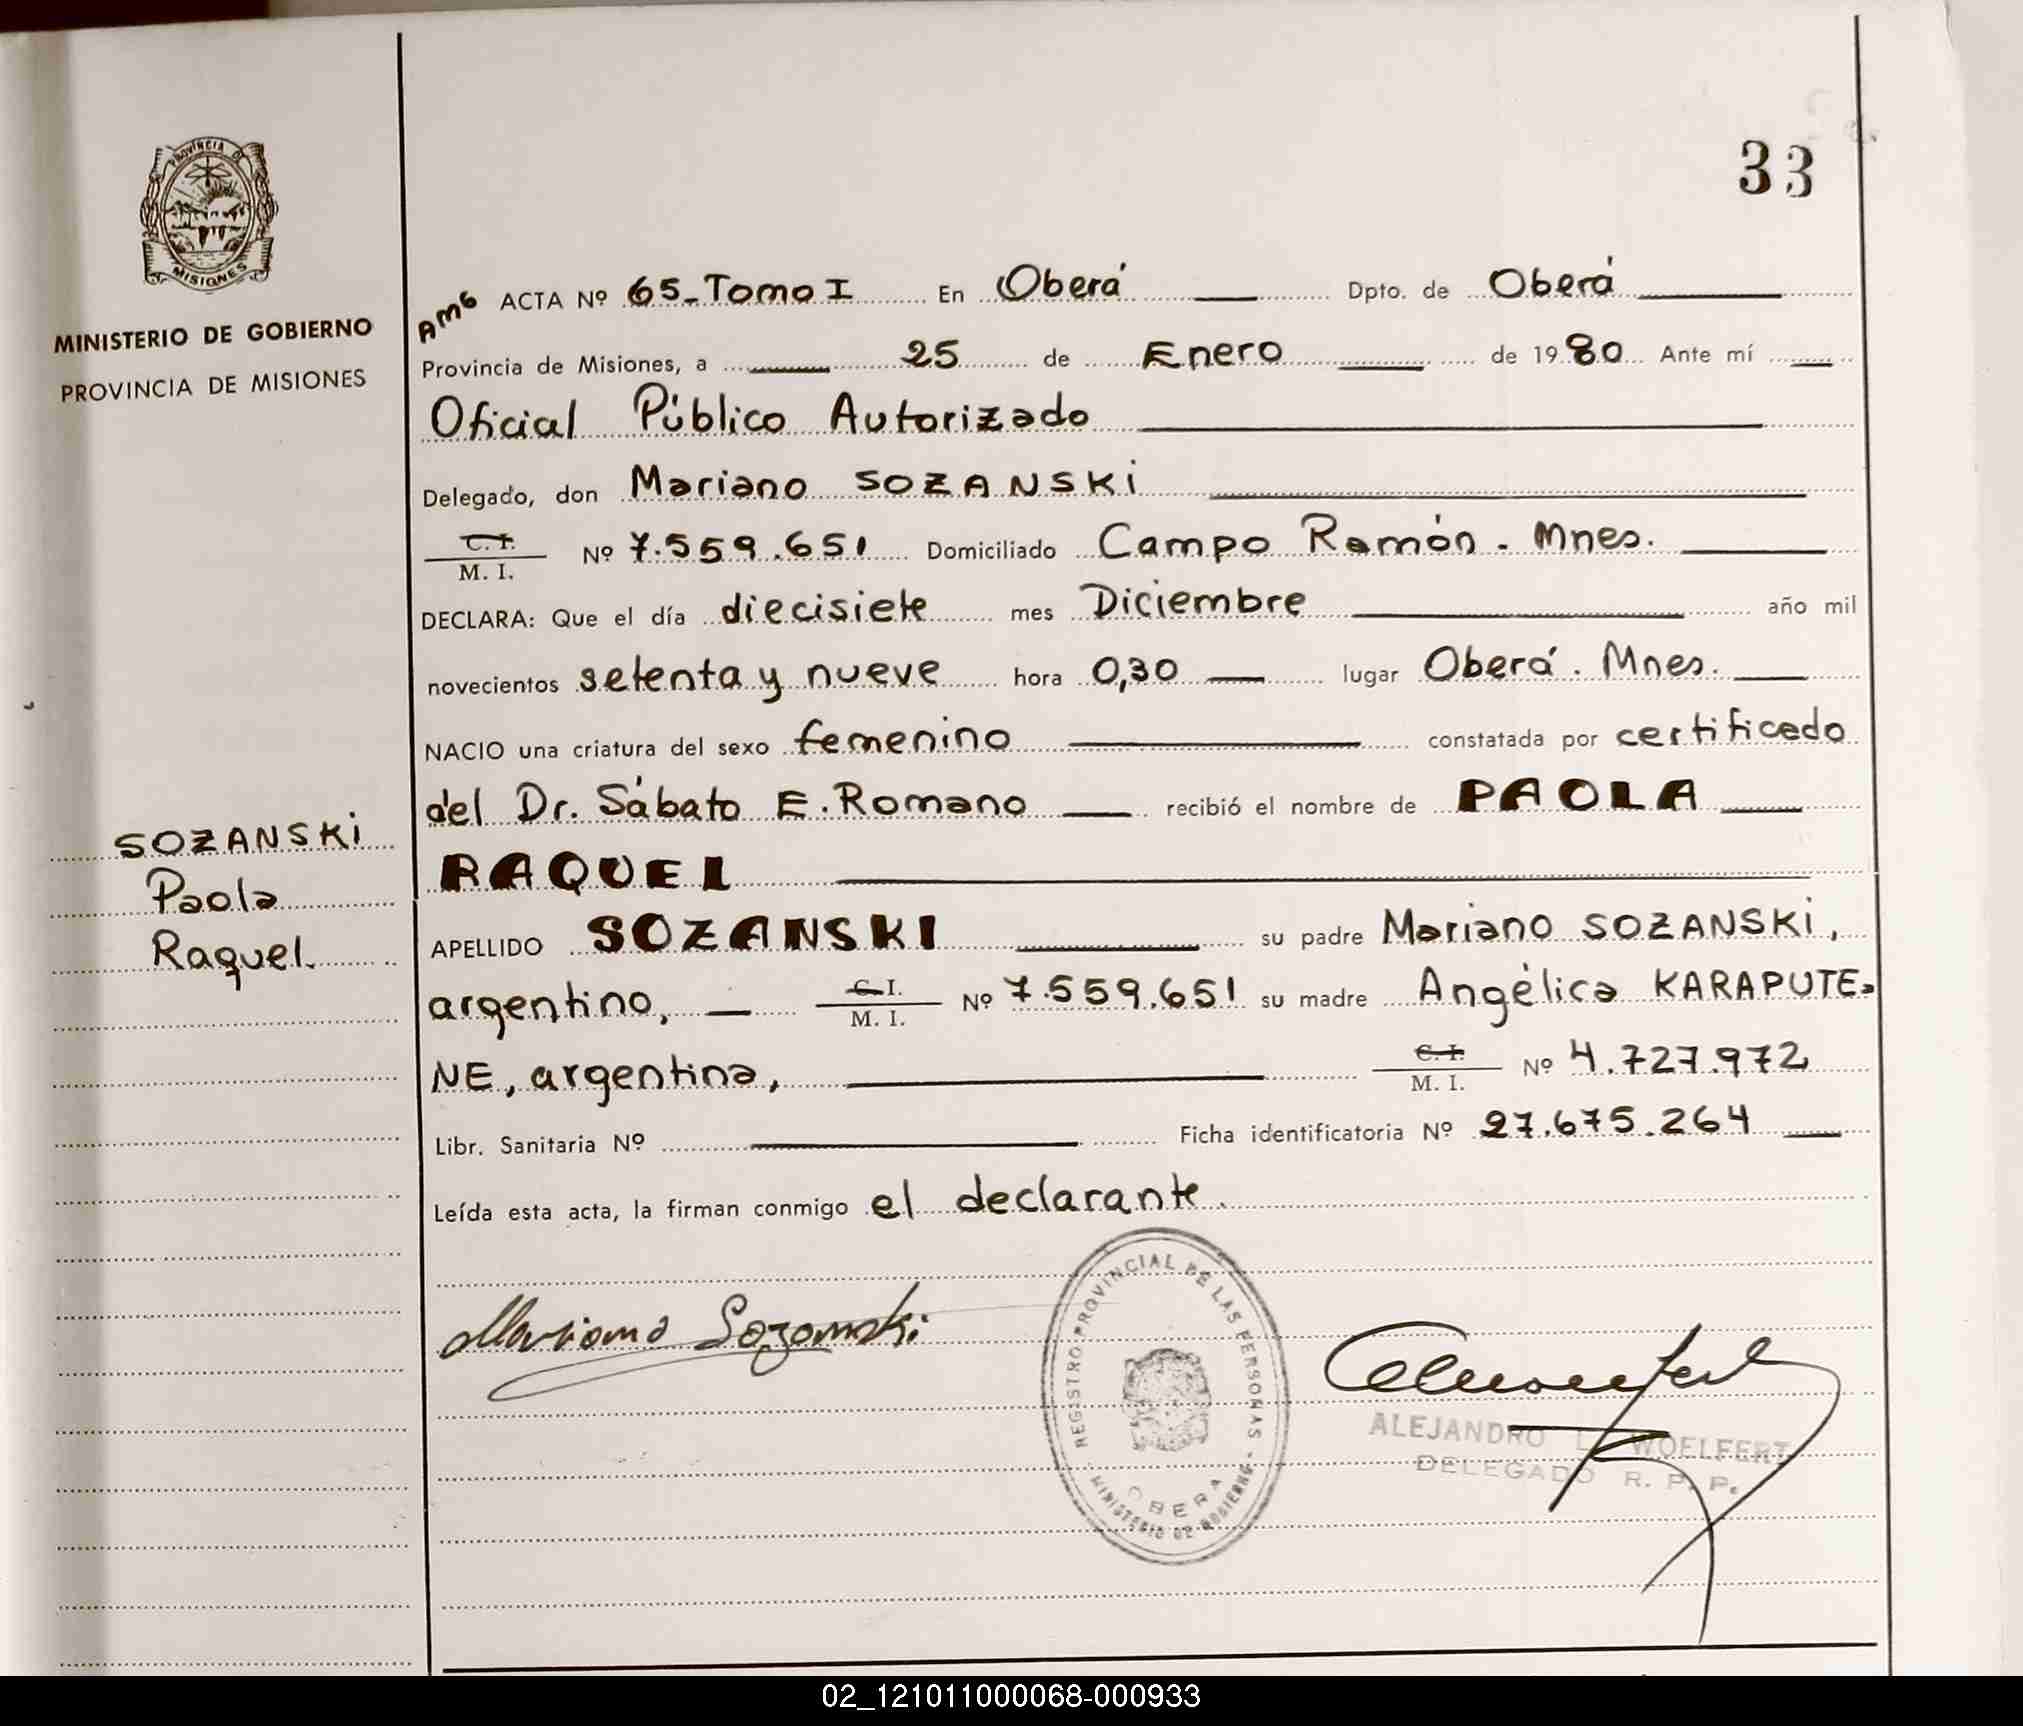 33
PROVINCIA DE
MISIONES
MINISTERIO DE GOBIERNO
PROVINCIA DE MISIONES
SOZANSKi
Paola
Raquel.
Amb ACTA Nº 65-Tomo I En Oberá Dpto. de Oberá
Provincia de Misiones, a 25 de Enero de 1980 Ante mí
Oficial Público Autorizado
Delegado, don Mariano SOZANSKi
C. I.
M. I. Nº 7.559.651 Domiciliado Campo Ramón - Mnes.
DECLARA: Que el día diecisiete mes Diciembre año mil
novecientos setenta y nueve hora 0,30 lugar Oberá. Mnes.
NACIO una criatura del sexo femenino constatada por certificado
del Dr. Sábato E. Romano recibió el nombre de PAOLA
RAQUEL
APELLIDO SOZANSKI su padre Mariano SOZANSKi,
argentino, C.I.
M. I. Nº 7.559.651 su madre Angélica KARAPUTE-
NE, argentina, C. I.
M. I. Nº 4.727.972
Libr. Sanitaria Nº Ficha identificatoria Nº 27.675.264
Leída esta acta, la firman conmigo el declarante.
Mariano Sozanski
REGISTRO PROVINCIAL DE LAS PERSONAS
OBERA
MINISTERIO DE GOBIERNO
ALEJANDRO L. WOELFERT
DELEGADO R. P. P.
02_121011000068-000933